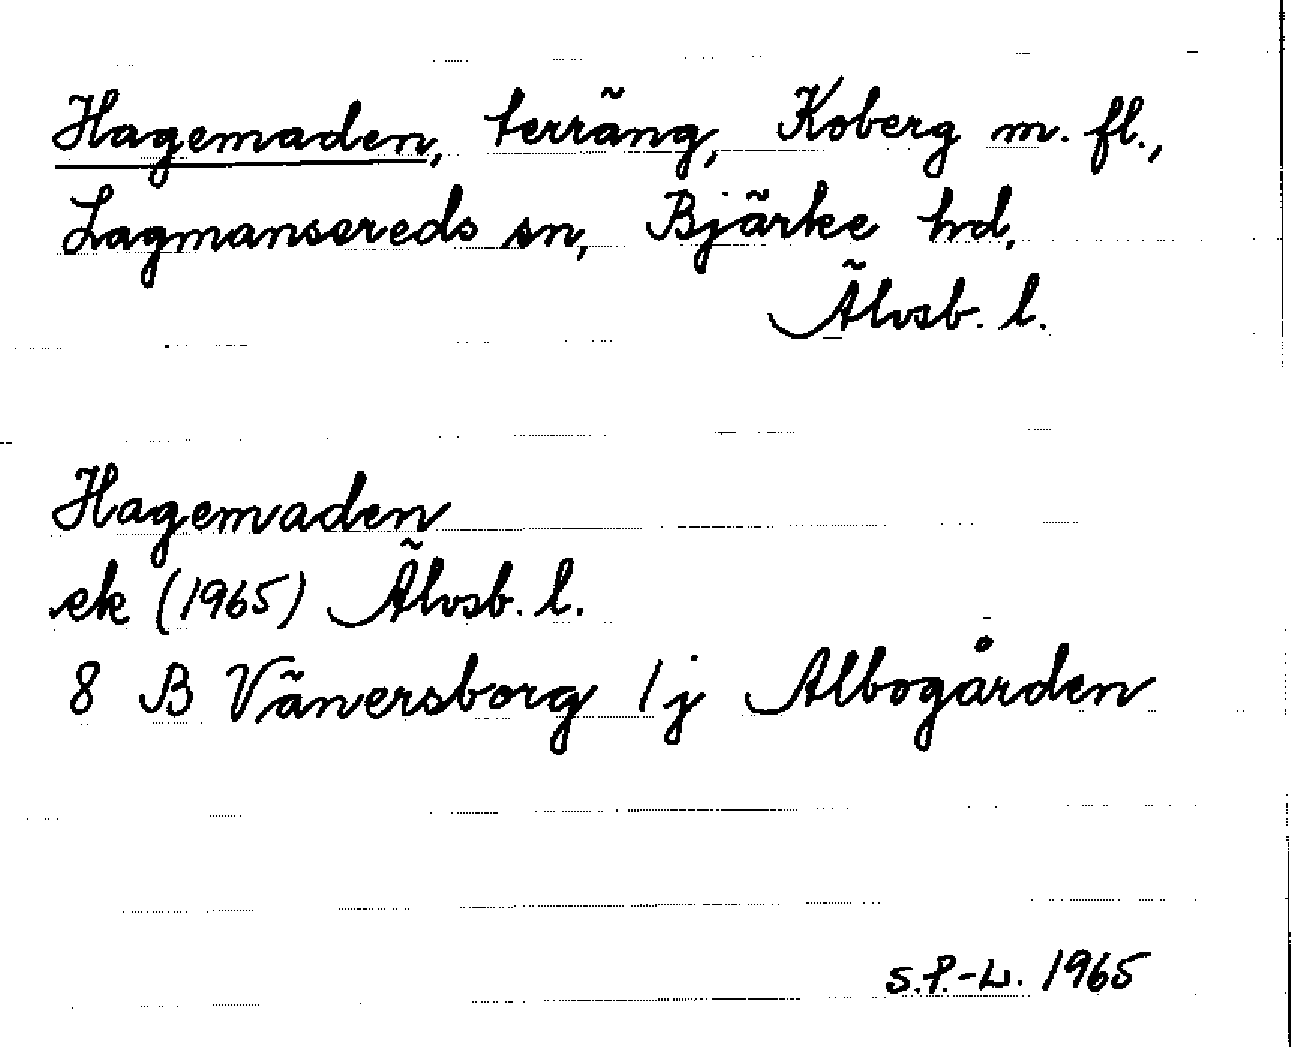 Hagemaden, terräng, Koberg m. fl.,
Lagmansereds sn, Bjärke hd,
Älvsb. l.
Hagemaden
ek (1965) Älvsb. l.
8 B Vänersborg 1j Albogården
S.P.-L. 1965